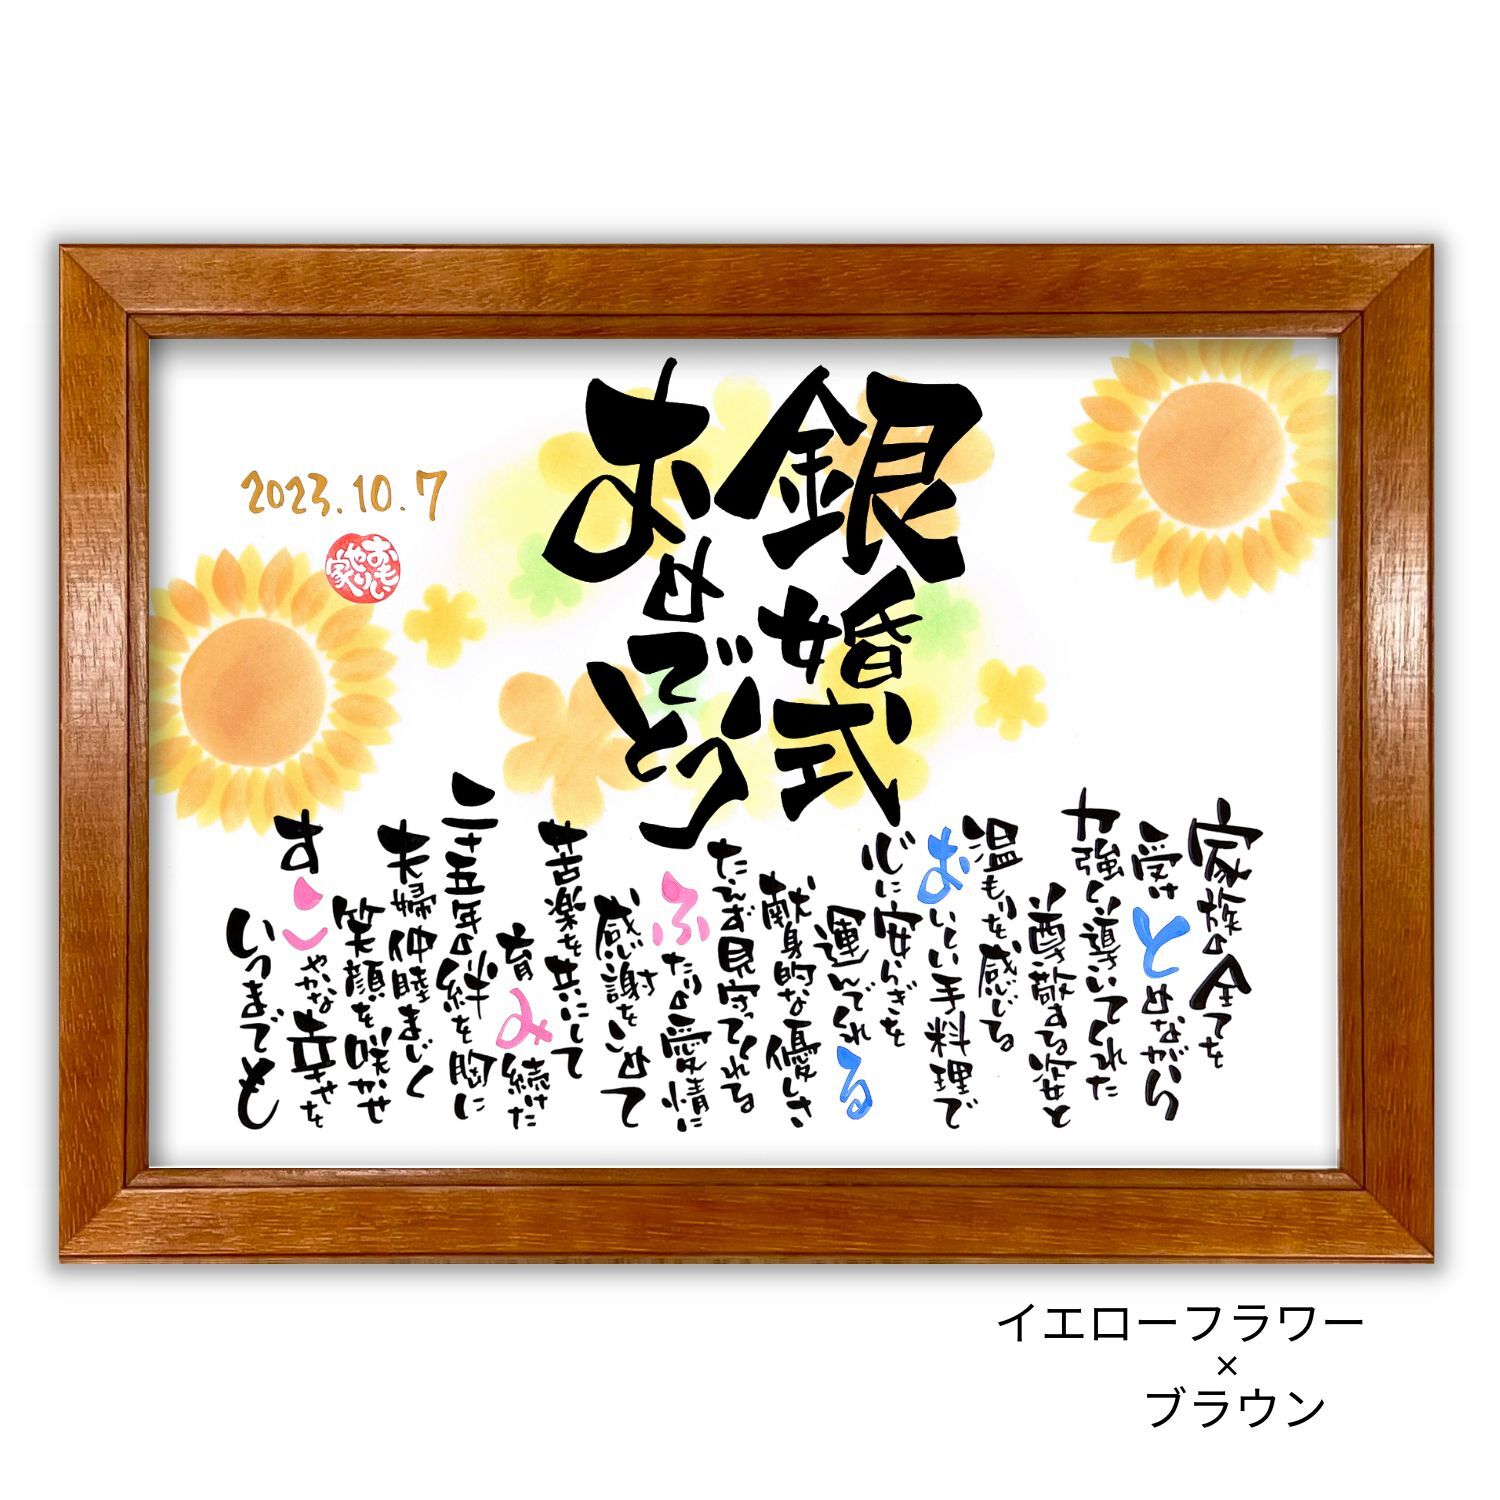 銀婚式
おめでとう
2023.10.7
おもい
やり
家
家族の全てを
受けとめながら
力強く導いてくれた
尊敬する姿と
温もりを感じる
おいしい手料理で
心に安らぎを
運んでくれる
献身的な優しさ
たえず見守ってくれてる
ふたりの愛情に
感謝をこめて
苦楽を共にして
育み続けた
二十五年の絆を胸に
夫婦仲睦まじく
笑顔を咲かせ
すこやかな幸せを
いつまでも
イエローフラワー
×
ブラウン